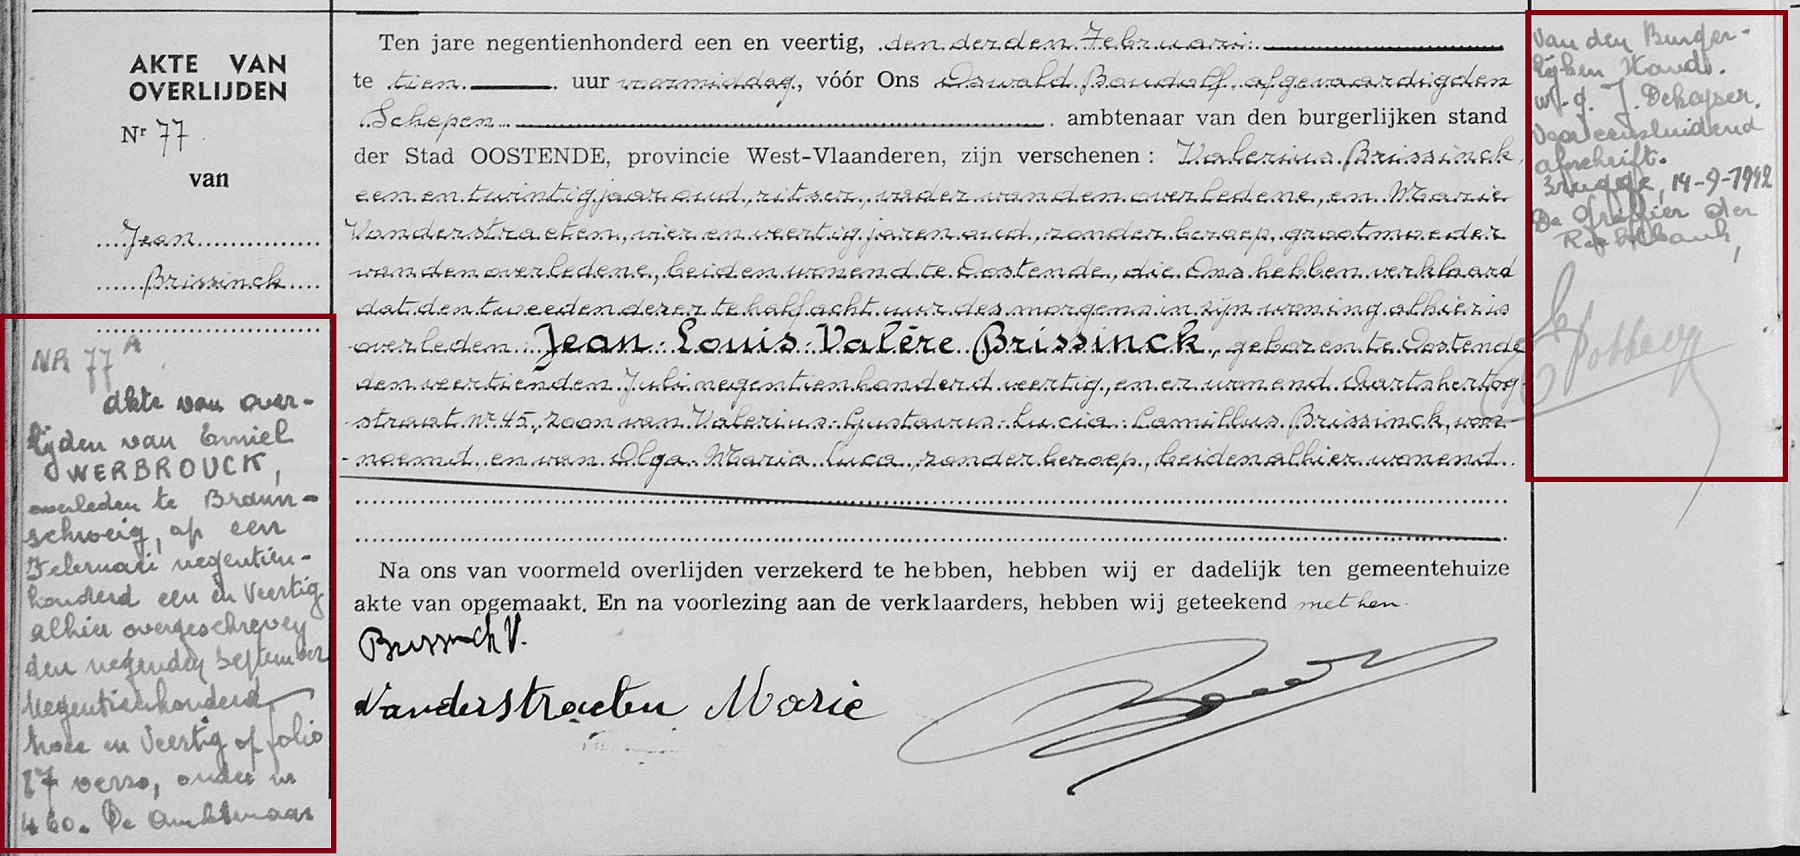 AKTE VAN
OVERLIJDEN
Nr 77.
van
Jean
Brissinck
NR 77 A
Akte van over-
lijden van Emiel
WERBROUCK,
overleden te Braun-
schweig, op een
Februari negentien-
honderd een en Veertig
alhier overgeschreven
den negenden September
Negentienhonderd
twee en Veertig op folio
87 verso, onder nr
460. De Ambtenaar
Ten jare negentienhonderd een en veertig, den derden Februari
te tien uur voormiddag, vóór Ons Oswald Baudolf, afgevaardigden
Schepen ambtenaar van den burgerlijken stand
der Stad OOSTENDE, provincie West-Vlaanderen, zijn verschenen : Valerius Brissinck,
een en twintig jaar oud, ritser, vader van den overledene, en Marie
Vanderstraeten, vier en veertig jaren oud, zonder beroep, grootmoeder
van den overledene, beiden wonend te Oostende, die Ons hebben verklaard
dat den tweeden dezer te half acht uur des morgens in zijn woning alhier is
overleden : Jean Louis Valère Brissinck, geboren te Oostende
den veertienden Juli negentienhonderd veertig, en er wonend Aartshertog-
straat nr 45, zoon van Valerius Gustavus Lucia Camillus Brissinck, voor-
noemd en van Olga Maria Luca, zonder beroep, beiden alhier wonend.
Na ons van voormeld overlijden verzekerd te hebben, hebben wij er dadelijk ten gemeentehuize
akte van opgemaakt. En na voorlezing aan de verklaarders, hebben wij geteekend met hen.
Brissinck V.
Vanderstraeten Marie
van den Burger-
lijken Stand.
w.g. J. Dekeyser.
Voor eensluidend
afschrift.
Brugge, 14-9-1942
De Greffier der
Rechtbank,